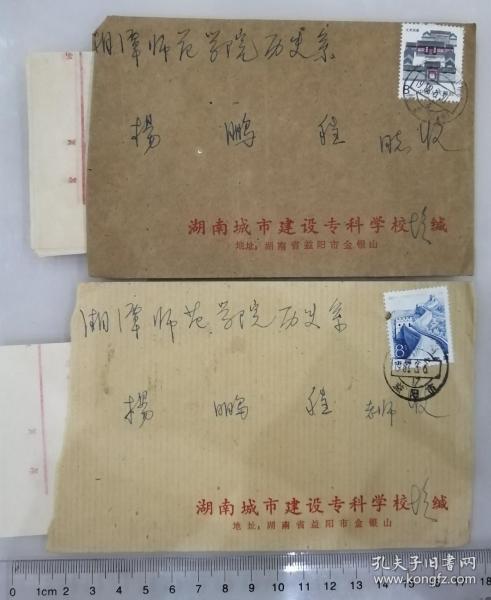 湘潭师范学院历史系
8
北京民居
杨鹏程 收
湖南城市建设专科学校 缄
地址：湖南省益阳市金银山
湘潭师范学院历史系
8
杨鹏程 老师 收
湖南城市建设专科学校 缄
地址：湖南省益阳市金银山
0 1cm 2 3 4 5 6 7 8 9 10 11 12 13 14 15 16 17 18
孔夫子旧书网
www.kongfz.com